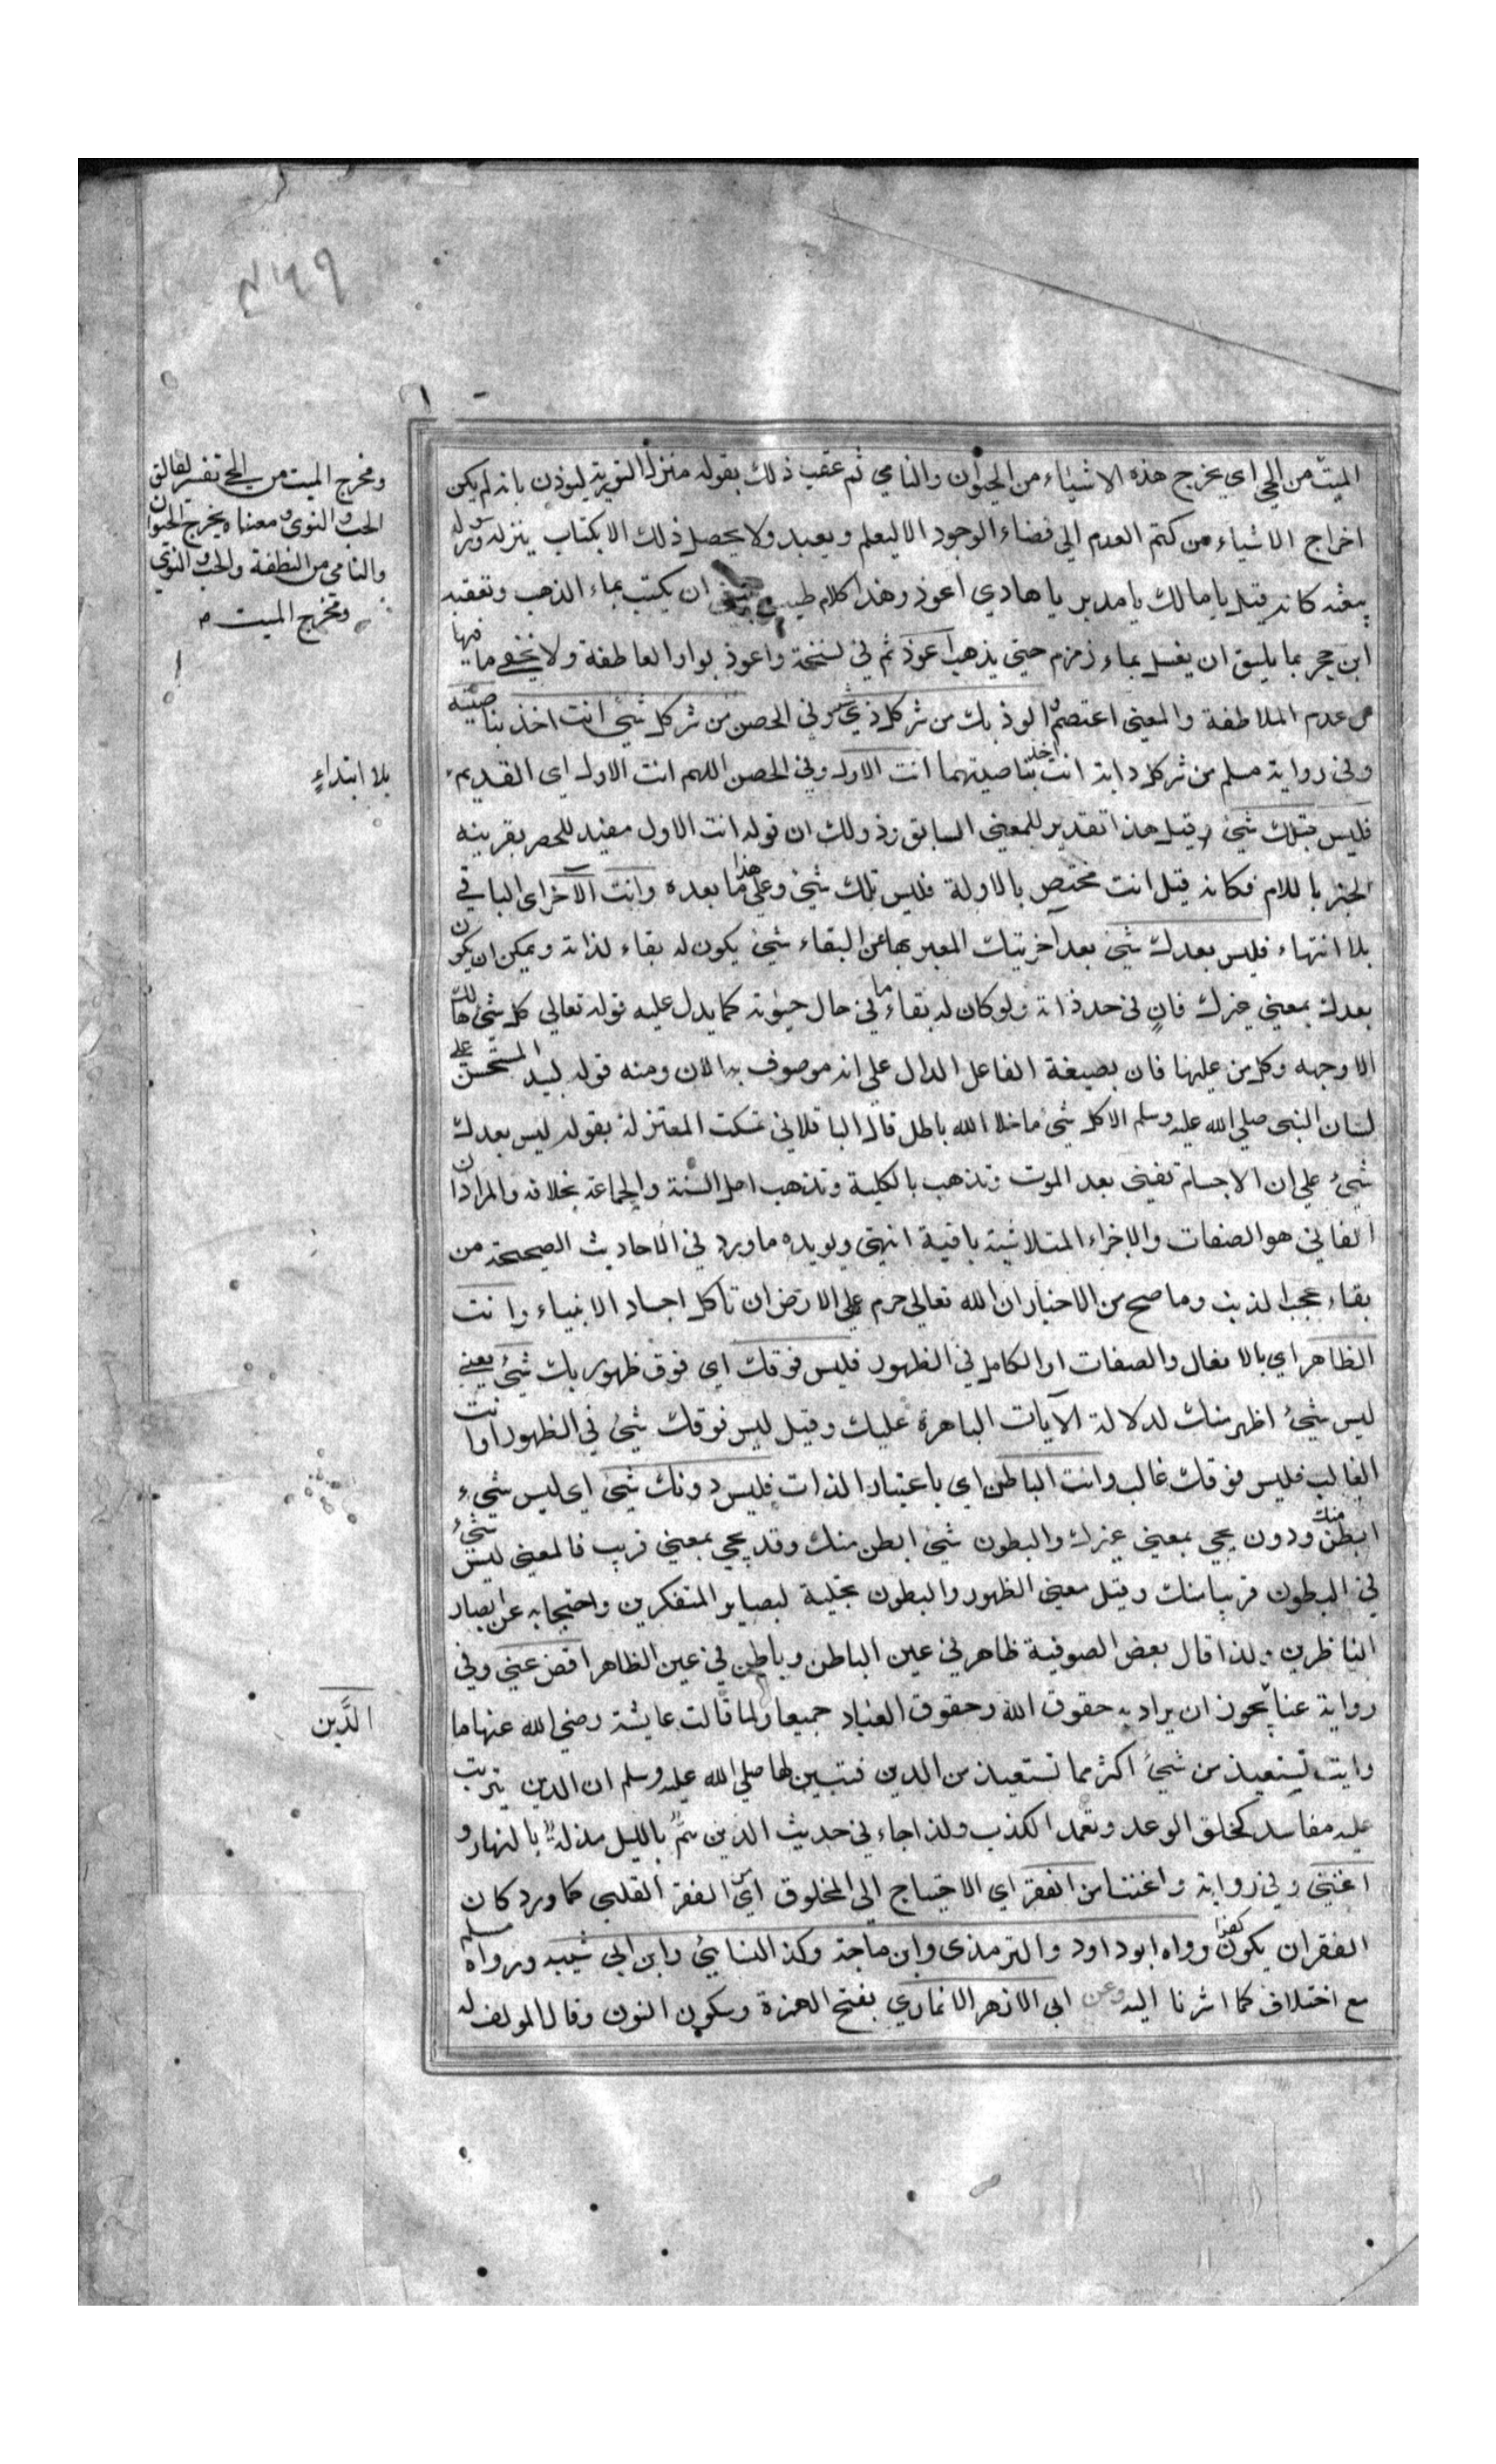 الميت من الحي اي يخرج هذه الاشياء من الحيوان والنامي ثم عقب ذلك بقوله منزل التورية ليوذن بانه لم يكن
اخراج الاشياء من كتم العدم الي فضاء الوجود الا ليعلم ويعبد ولا يحصل ذلك الا بكتاب ينزله ورسوله
يبعثه كانه قيل يا مالك يا مدبر يا هادي اعوذ وهذا كلام طيب ان يكتب بماء الذهب وتعقبه
ابن حجر بما يليق ان يغسل بماء زمزم حتي يذهب اعوذ ثم في نسخة واعوذ بواو العاطفة ولا يخفي ما فيها
من عدم الملاطفة والمعني اعتصم والوذ بك من شر كل ذي شر وفي الحصن من شر كل شيء انت اخذ بناصيته
وفي رواية مسلم من شر كل دابة انت اخذ بناصيتهما انت الاول وفي الحصن اللهم انت الاول اي القديم
فليس قبلك شيء وقيل هذا تقدير للمعني السابق وذلك ان قوله انت الاول مفيد للحصر بقرينه
الخبر باللام فكانه قيل انت مختص بالاولة فليس قبلك شيء وعلي هذا ما بعده وانت الآخر اي الباقي
بلا انتهاء فليس بعدك شيء بعد آخريتك المعبر بها عن البقاء شيء يكون له بقاء لذاته ويمكن ان يكون
بعدك بمعني غيرك فان في حد ذاته ولو كان له بقاء ما في حال حيوته كما يدل عليه قوله تعالي كل شيء هالك
الا وجهه وكل من عليها فان بصيغة الفاعل الدال علي انه موصوف به الان ومنه قوله لبيد المستحسن علي
لسان النبي صلي الله عليه وسلم الا كل شيء ما خلا الله باطل قال الباقلاني تمسكت المعتزلة بقوله ليس بعدك
شيء علي ان الاجسام تفني بعد الموت وتذهب بالكلية ومذهب اهل السنة والجماعة بخلافه والمراد ان
الفاني هو الصفات والاجزاء المتلاشية باقية انتهي ويويده ما ورد في الاحاديث الصحيحة من
بقاء عجب الذنب وما صح من الاخبار ان الله تعالي حرم علي الارض ان تاكل اجساد الانبياء وانت
الظاهر اي بالافعال والصفات او الكامل في الظهور فليس فوقك اي فوق ظهورك بك شيء يعني
ليس شيء اظهر منك لدلالة الآيات الباهرة عليك وقيل ليس فوقك شيء في الظهور او انت
الغالب فليس فوقك غالب وانت الباطن اي باعتبار الذات فليس دونك شيء اي ليس شيء
ابطن منك ودون يجي بمعني غيرك والبطون شيء ابطن منك وقد يجي بمعني قريب فالمعني ليس شيء
في البطون قريبا منك وقيل معني الظهور والبطون تجلية لبصاير المتفكرين واحتجابه عن ابصار
الناظرين ولذا قال بعض الصوفية ظاهر في عين الباطن وباطن في عين الظاهر اقض عني وفي
رواية عنا يجوز ان يراد به حقوق الله وحقوق العباد جميعا ولما قالت عايشة رضي الله عنها ما
رايت تستعيذ من شيء اكثر مما تستعيذ من الدين فتبين لها صلي الله عليه وسلم ان الدين يترتب
عليه مفاسد كخلق الوعد وتعمد الكذب ولذا جاء في حديث الدين هم بالليل مذلة بالنهار و
اغنني وفي رواية واغننا من الفقر اي الاحتياج الي المخلوق اي من الفقر القلبي كما ورد كان
الفقر ان يكون كفرا رواه ابو داود والترمذي وابن ماجة وكذ النسائي وابن ابي شيبه ورواه مسلم
مع اختلاف كما اشرنا اليه وعن ابي الازهر الانماري بفتح الهمزة وسكون النون وقال المولف له
ومخرج الميت من الحي تفسير لفالق
الحب والنوي ومعناه يخرج الحيوان
والنامي من النطفة والحب والنوي
ومخرج الميت
بلا ابتداءٍ
الدَّين